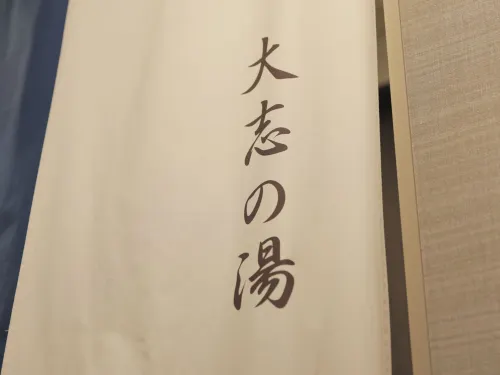 大志の湯